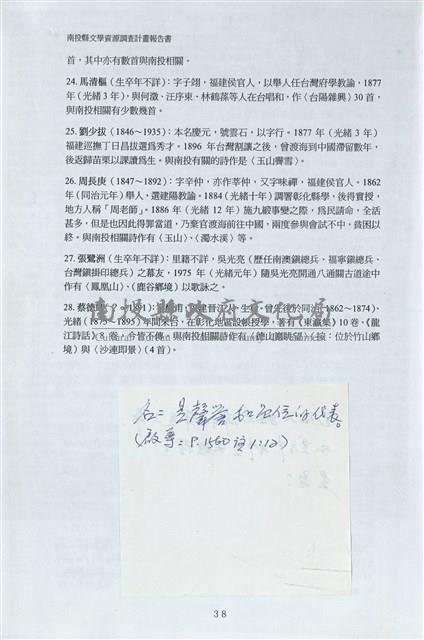 南投縣文學資源調查計畫報告書
首，其中亦有數首與南投相關。
24. 馬清樞（生卒年不詳）：字子翊，福建侯官人，以舉人任台灣府學教諭，1877
年（光緒 3 年），與何澂、汪序東、林鶴蓀等人在台唱和，作〈台陽雜興〉30 首，
與南投有關者有少數幾首。
25. 劉少拔（1846～1935）：本名慶元，號雲石，以字行。1877 年（光緒 3 年）
福建巡撫丁日昌拔選為秀才。1896 年台灣割讓之後，曾渡海到中國滯留數年，
後返歸苗栗以課讀為生。與南投有關的詩作是〈玉山霽雪〉。
26. 周長庚（1847～1892）：字辛仲，亦作莘仲，又字味禪，福建侯官人。1862
年（同治元年）舉人，選建陽教諭。1884（光緒十年）調署彰化縣學，後得實授，
地方人稱「周老師」。1886 年（光緒 12 年）施九緞事變之際，為民請命，全活
甚多，但是也因此得罪當道，乃棄官渡海前往中國，兩度參與會試不中，貧困以
終。與南投相關詩作有〈玉山〉、〈濁水溪〉等。
27. 張鷺洲（生卒年不詳）：里籍不詳，吳光亮（歷任南澳鎮總兵、福寧鎮總兵、
台灣鎮掛印總兵）之幕友，1975 年（光緒元年）隨吳光亮開通八通關古道途中
作有〈鳳凰山〉、〈鹿谷鄉境〉以歌詠之。
28. 蔡德輝（？～1891）：福建晉江人，生平曾先後於同治（1862～1874）、
光緒（1875～1895）年間來台，在彰化地區設帳授學，著有《東瀛集》10 卷、《龍
江詩話》8 卷，今皆不傳。與南投相關詩作有〈按：位於竹山鄉
境〉與〈沙連即景〉（4 首）。
南投縣政府文化局
名：是聲譽和定位的代表。
（啟導：P.1560 箴1:12）
38